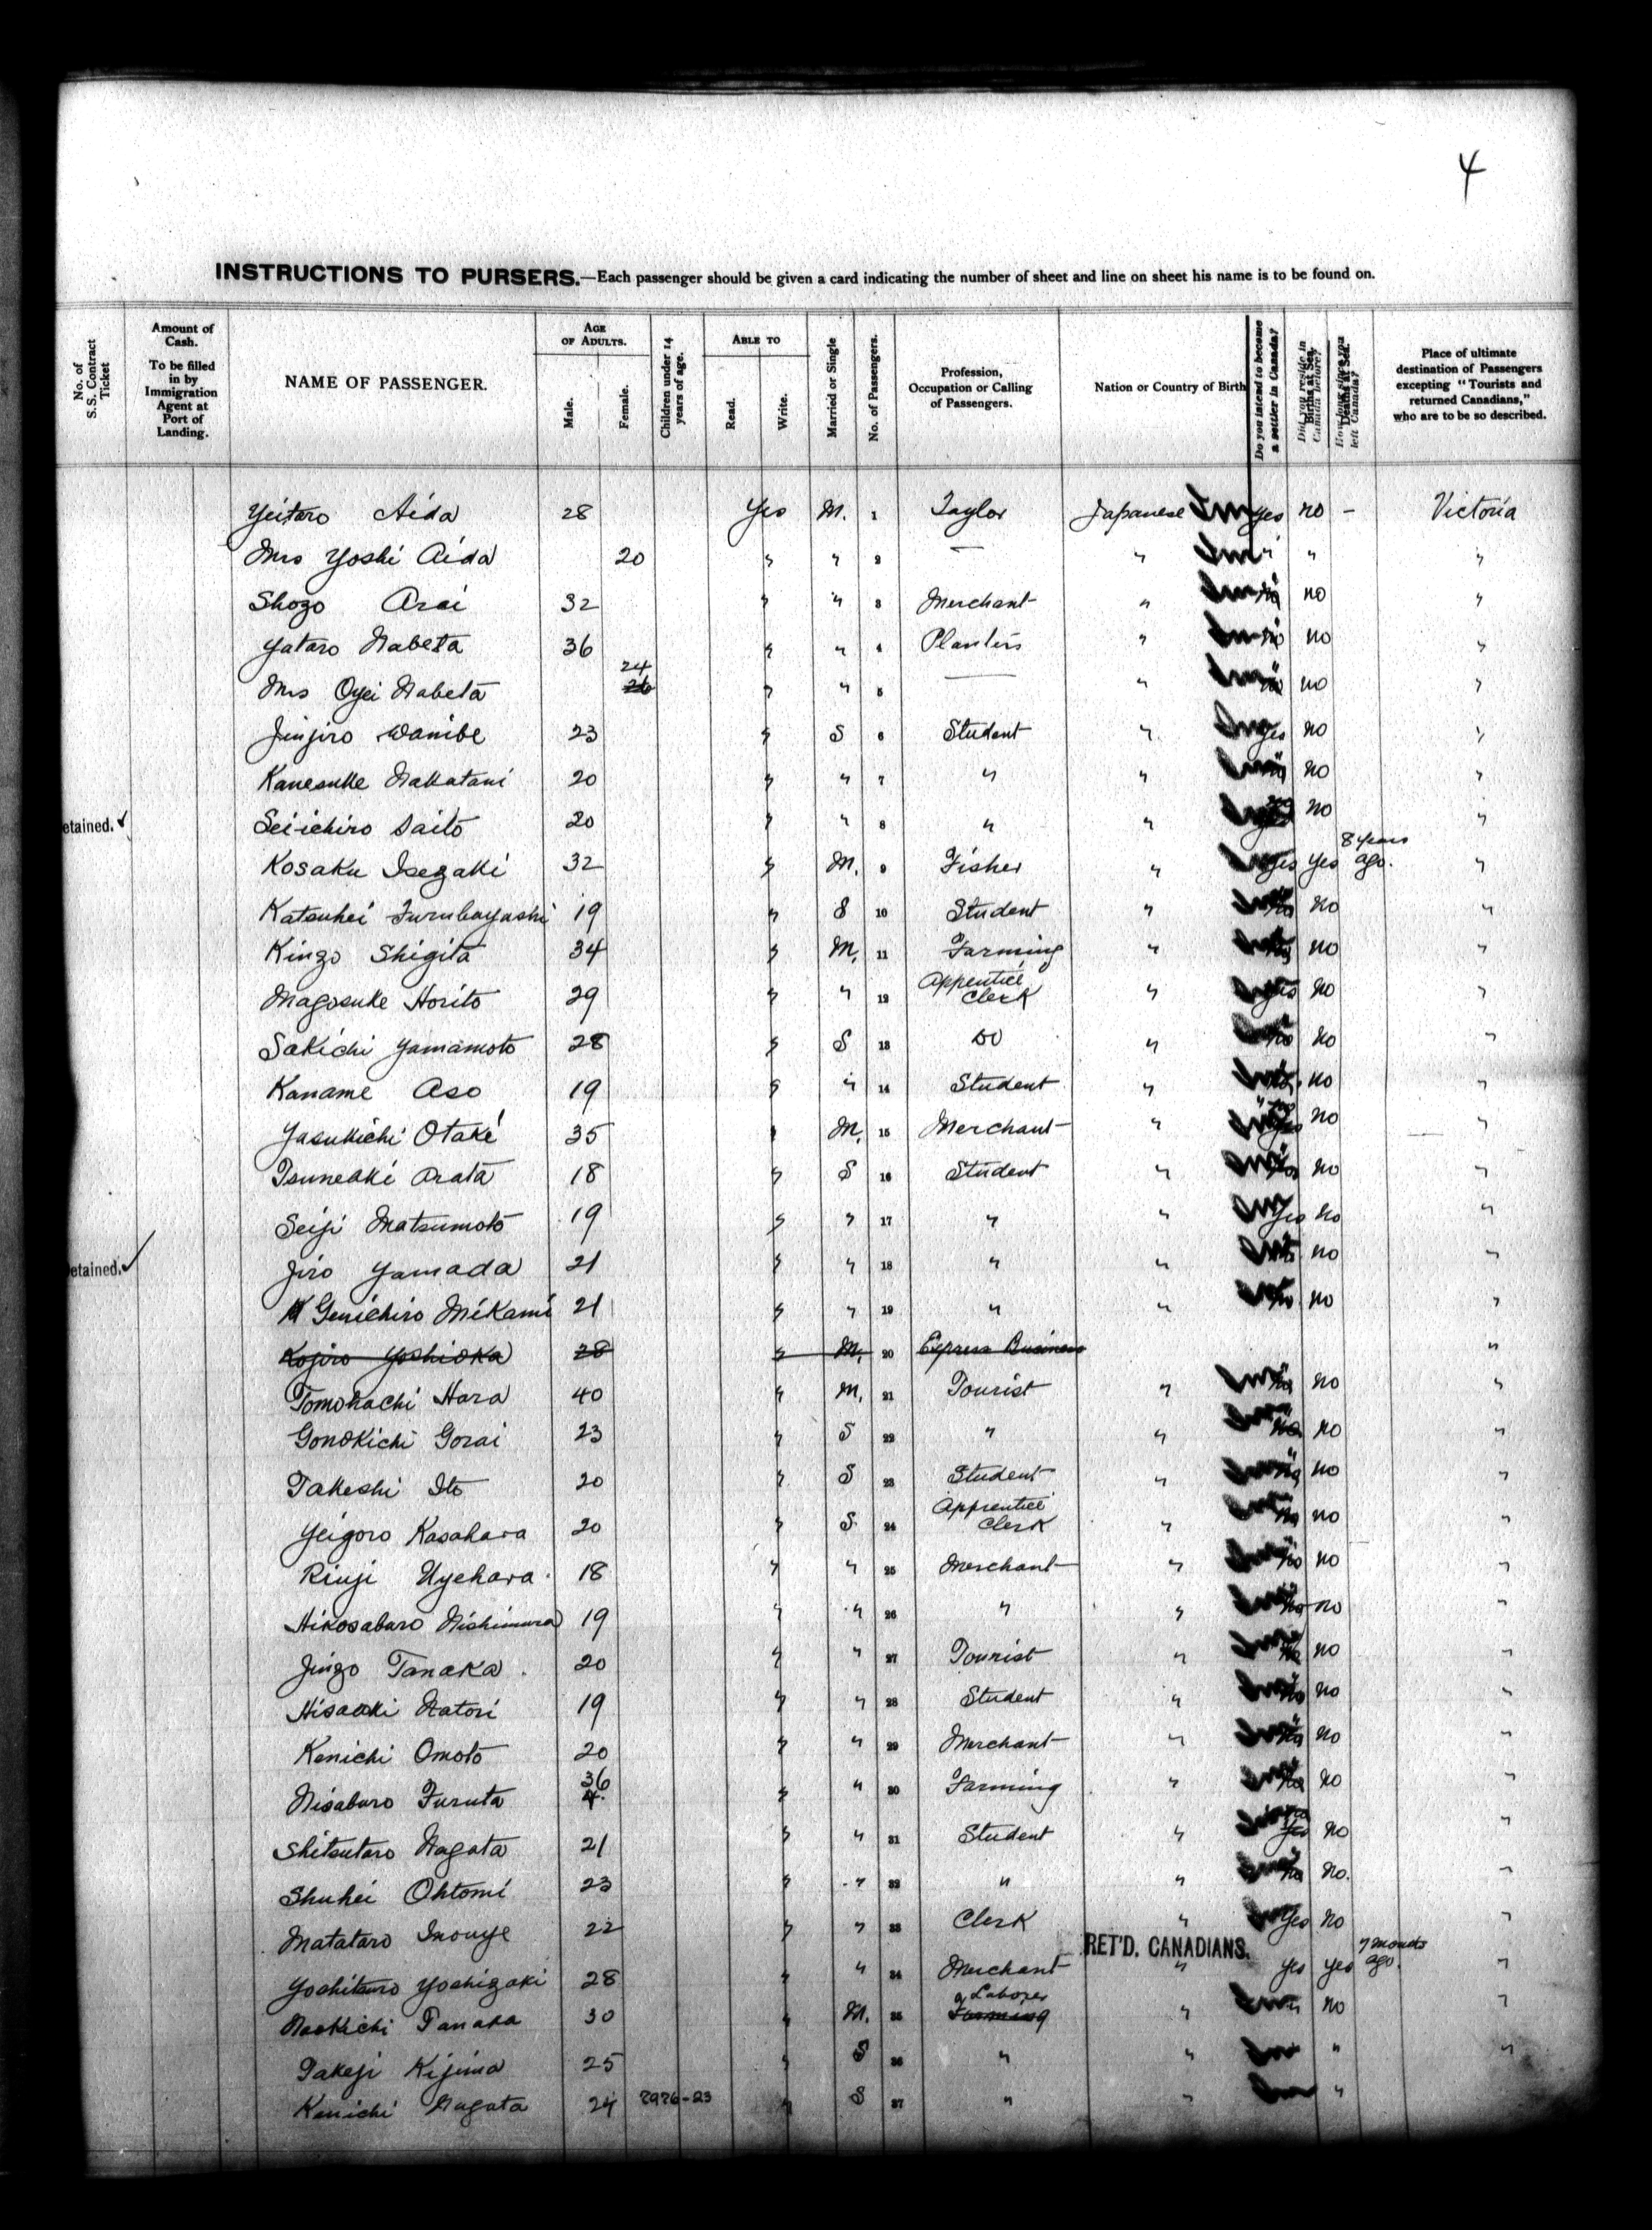 4
INSTRUCTIONS TO PURSERS.—Each passenger should be given a card indicating the number of sheet and line on sheet his name is to be found on.
No. of S. S. Contract Ticket
Amount of Cash. To be filled in by Immigration Agent at Port of Landing.
NAME OF PASSENGER.
AGE OF ADULTS. Male. Female.
Children under 14 years of age.
ABLE TO Read. Write.
Married or Single
No. of Passengers.
Profession, Occupation or Calling of Passengers.
Nation or Country of Birth
Do you intend to become a settler in Canada?
Place of ultimate destination of Passengers excepting "Tourists and returned Canadians," who are to be so described.
Yeitaro Aida 28 Yes M. 1 Taylor Japanese yes no - Victoria
Mrs Yoshi Aida 20 " " 2 — " " " "
Shozo Arai 32 " " 3 Merchant " no "
Yataro Nabeta 36 " " 4 Planters " no "
Mrs Oyei Nabeta 24 " " 5 — " no "
Jinjiro Wanibe 23 " S 6 Student " yes no "
Kanesuke Nakatani 20 " " 7 " " no "
etained. ✓ Sei-ichiro Saito 20 " " 8 " " no "
Kosaku Isezaki 32 " M. 9 Fisher " yes yes 8 years ago. "
Katsuhei Furubayashi 19 " S 10 Student " no "
Kingo Shigita 34 " M. 11 Farming " no "
Magosuke Horito 29 " " 12 Apprentice Clerk " no "
Sakichi Yamamoto 28 " S 13 Do " no "
Kaname Aso 19 " " 14 Student " no "
Yasukichi Otake 35 " M. 15 Merchant " no "
Tsuneaki Arata 18 " S 16 Student " no "
Seiji Matsumoto 19 " " 17 " " yes no "
etained. ✓ Jiro Yamada 21 " " 18 " " no "
Genichiro Mikami 21 " " 19 " " no "
Kojiro Yoshioka 28 " M. 20 Express Business "
Tomohachi Hara 40 " M. 21 Tourist " no "
Gonokichi Gorai 23 " S 22 " " no "
Takeshi Ito 20 " S 23 Student " no "
Yeigoro Kasahara 20 " S 24 Apprentice Clerk " no "
Riuji Uyehara 18 " " 25 Merchant " no "
Hikosaburo Nishimura 19 " " 26 " " no "
Jingo Tanaka 20 " " 27 Tourist " no "
Hisaaki Natori 19 " " 28 Student " no "
Kenichi Omoto 20 " " 29 Merchant " no "
Nisaburo Furuta 36 " " 30 Farming " no "
Shitsutaro Nagata 21 " " 31 Student " no "
Shuhei Ohtomi 23 " " 32 " " no. "
Matataro Inouye 22 " " 33 Clerk " yes no "
RET'D. CANADIANS.
Yoshitaro Yoshizaki 28 " " 34 Merchant " yes yes 7 months ago. "
Naokichi Tanaka 30 " M. 35 Farming Laborer " no "
Takeji Kijima 25 " S 36 " " " "
Kenichi Nagata 24 7976-23 " S 37 " " "